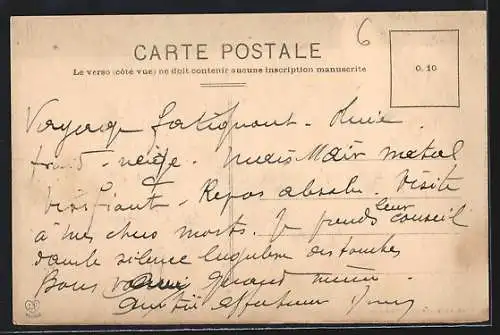 6
CARTE POSTALE
Le verso (côté vue) ne doit contenir aucune inscription manuscrite
0.10
Voyage fatigant - Pluie
froid - neige. Mais l'air natal
vivifiant - Repos absolu. Visite
à mes chers morts. Je prends leur conseil
dans le silence lugubre des tombes
Bons
affectueuse